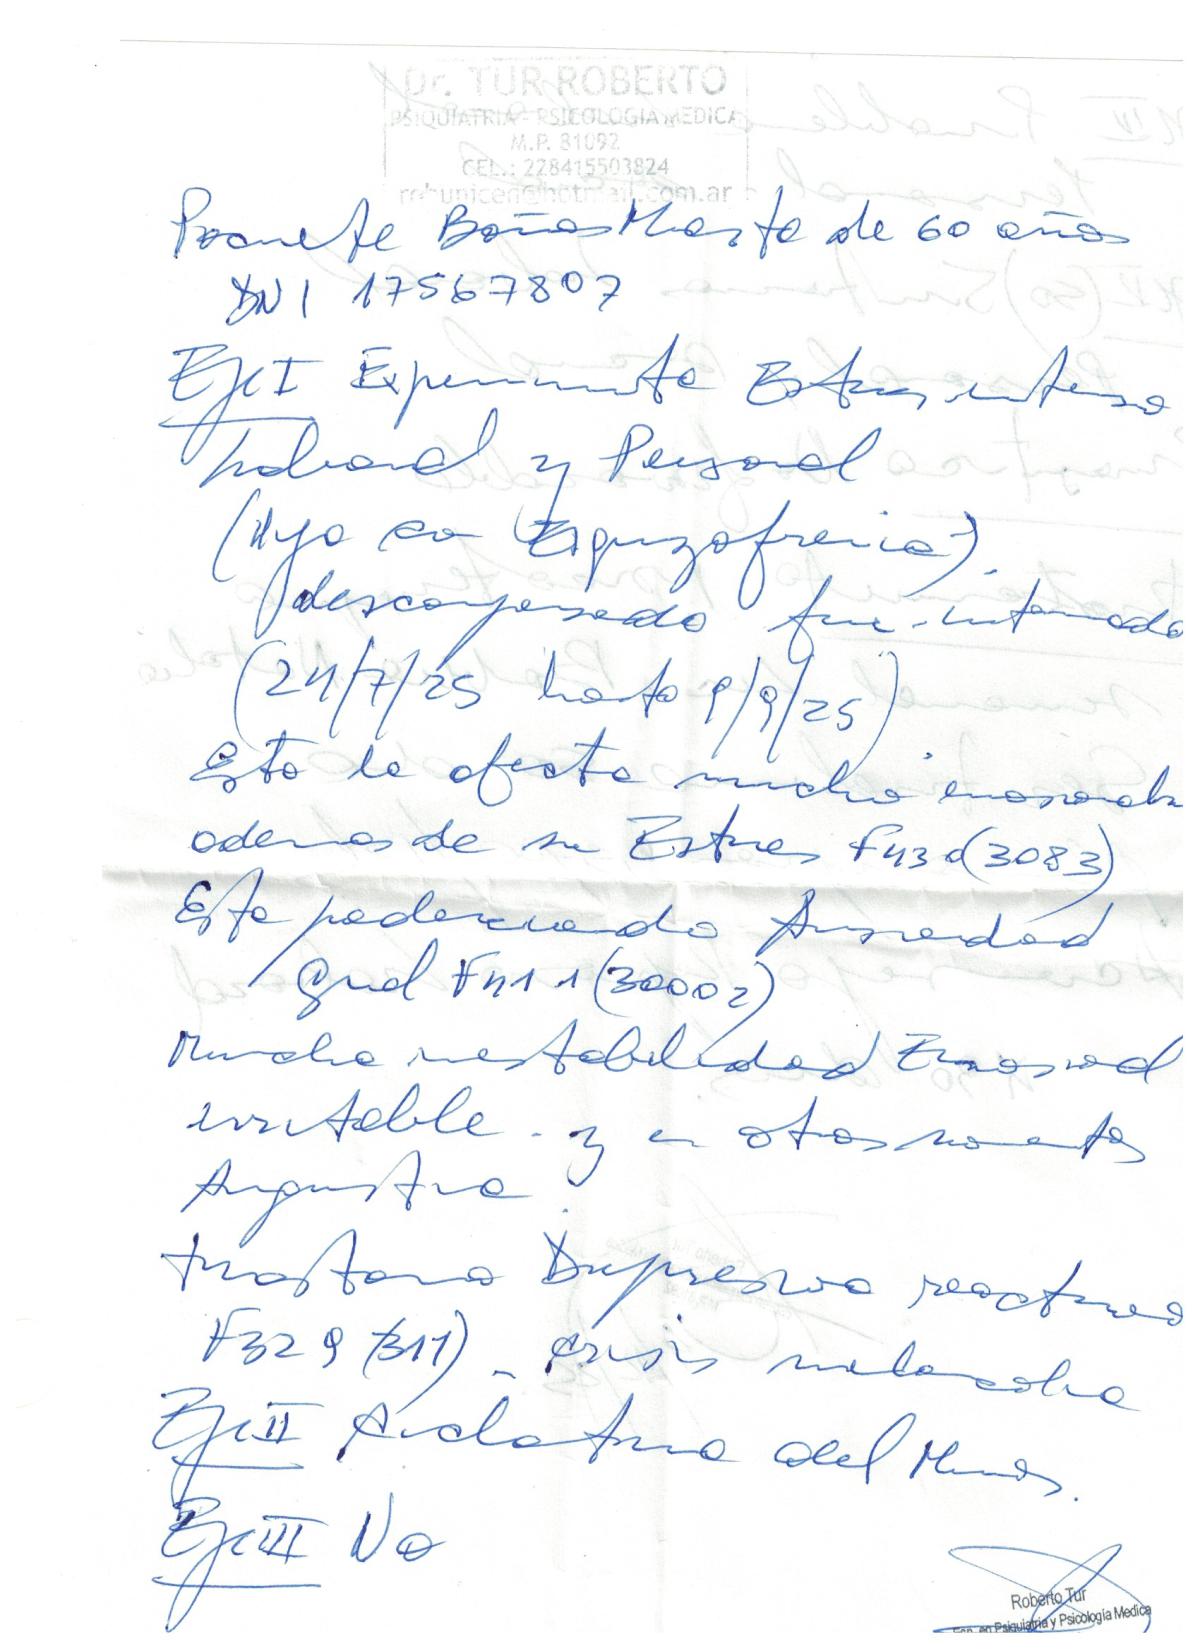 Dr. TUR ROBERTO
PSIQUIATRIA - PSICOLOGIA MEDICA
M.P. 81092
CEL.: 228415503824
robunicen@hotmail.com.ar
Paciente Bañas Marta de 60 años
DNI 17567807
Eje I Experimenta Estres intenso
Laboral y Personal
(Hijo con Esquizofrenia)
descompensado fue internado
(24/7/25 hasta 9/9/25)
Esto le afecta mucho
ademas de su Estres F43 (3083)
Esta padeciendo Ansiedad
Gral F41 1 (30002)
Mucha inestabilidad Emocional
irritable - y en otros momentos
Angustia.
trastorno Depresivo reactivo
F32 9 (311) - crisis melancolica
Eje II Ciclotimia del Humor.
Eje III No
Roberto Tur
Esp. en Psiquiatria y Psicología Medica